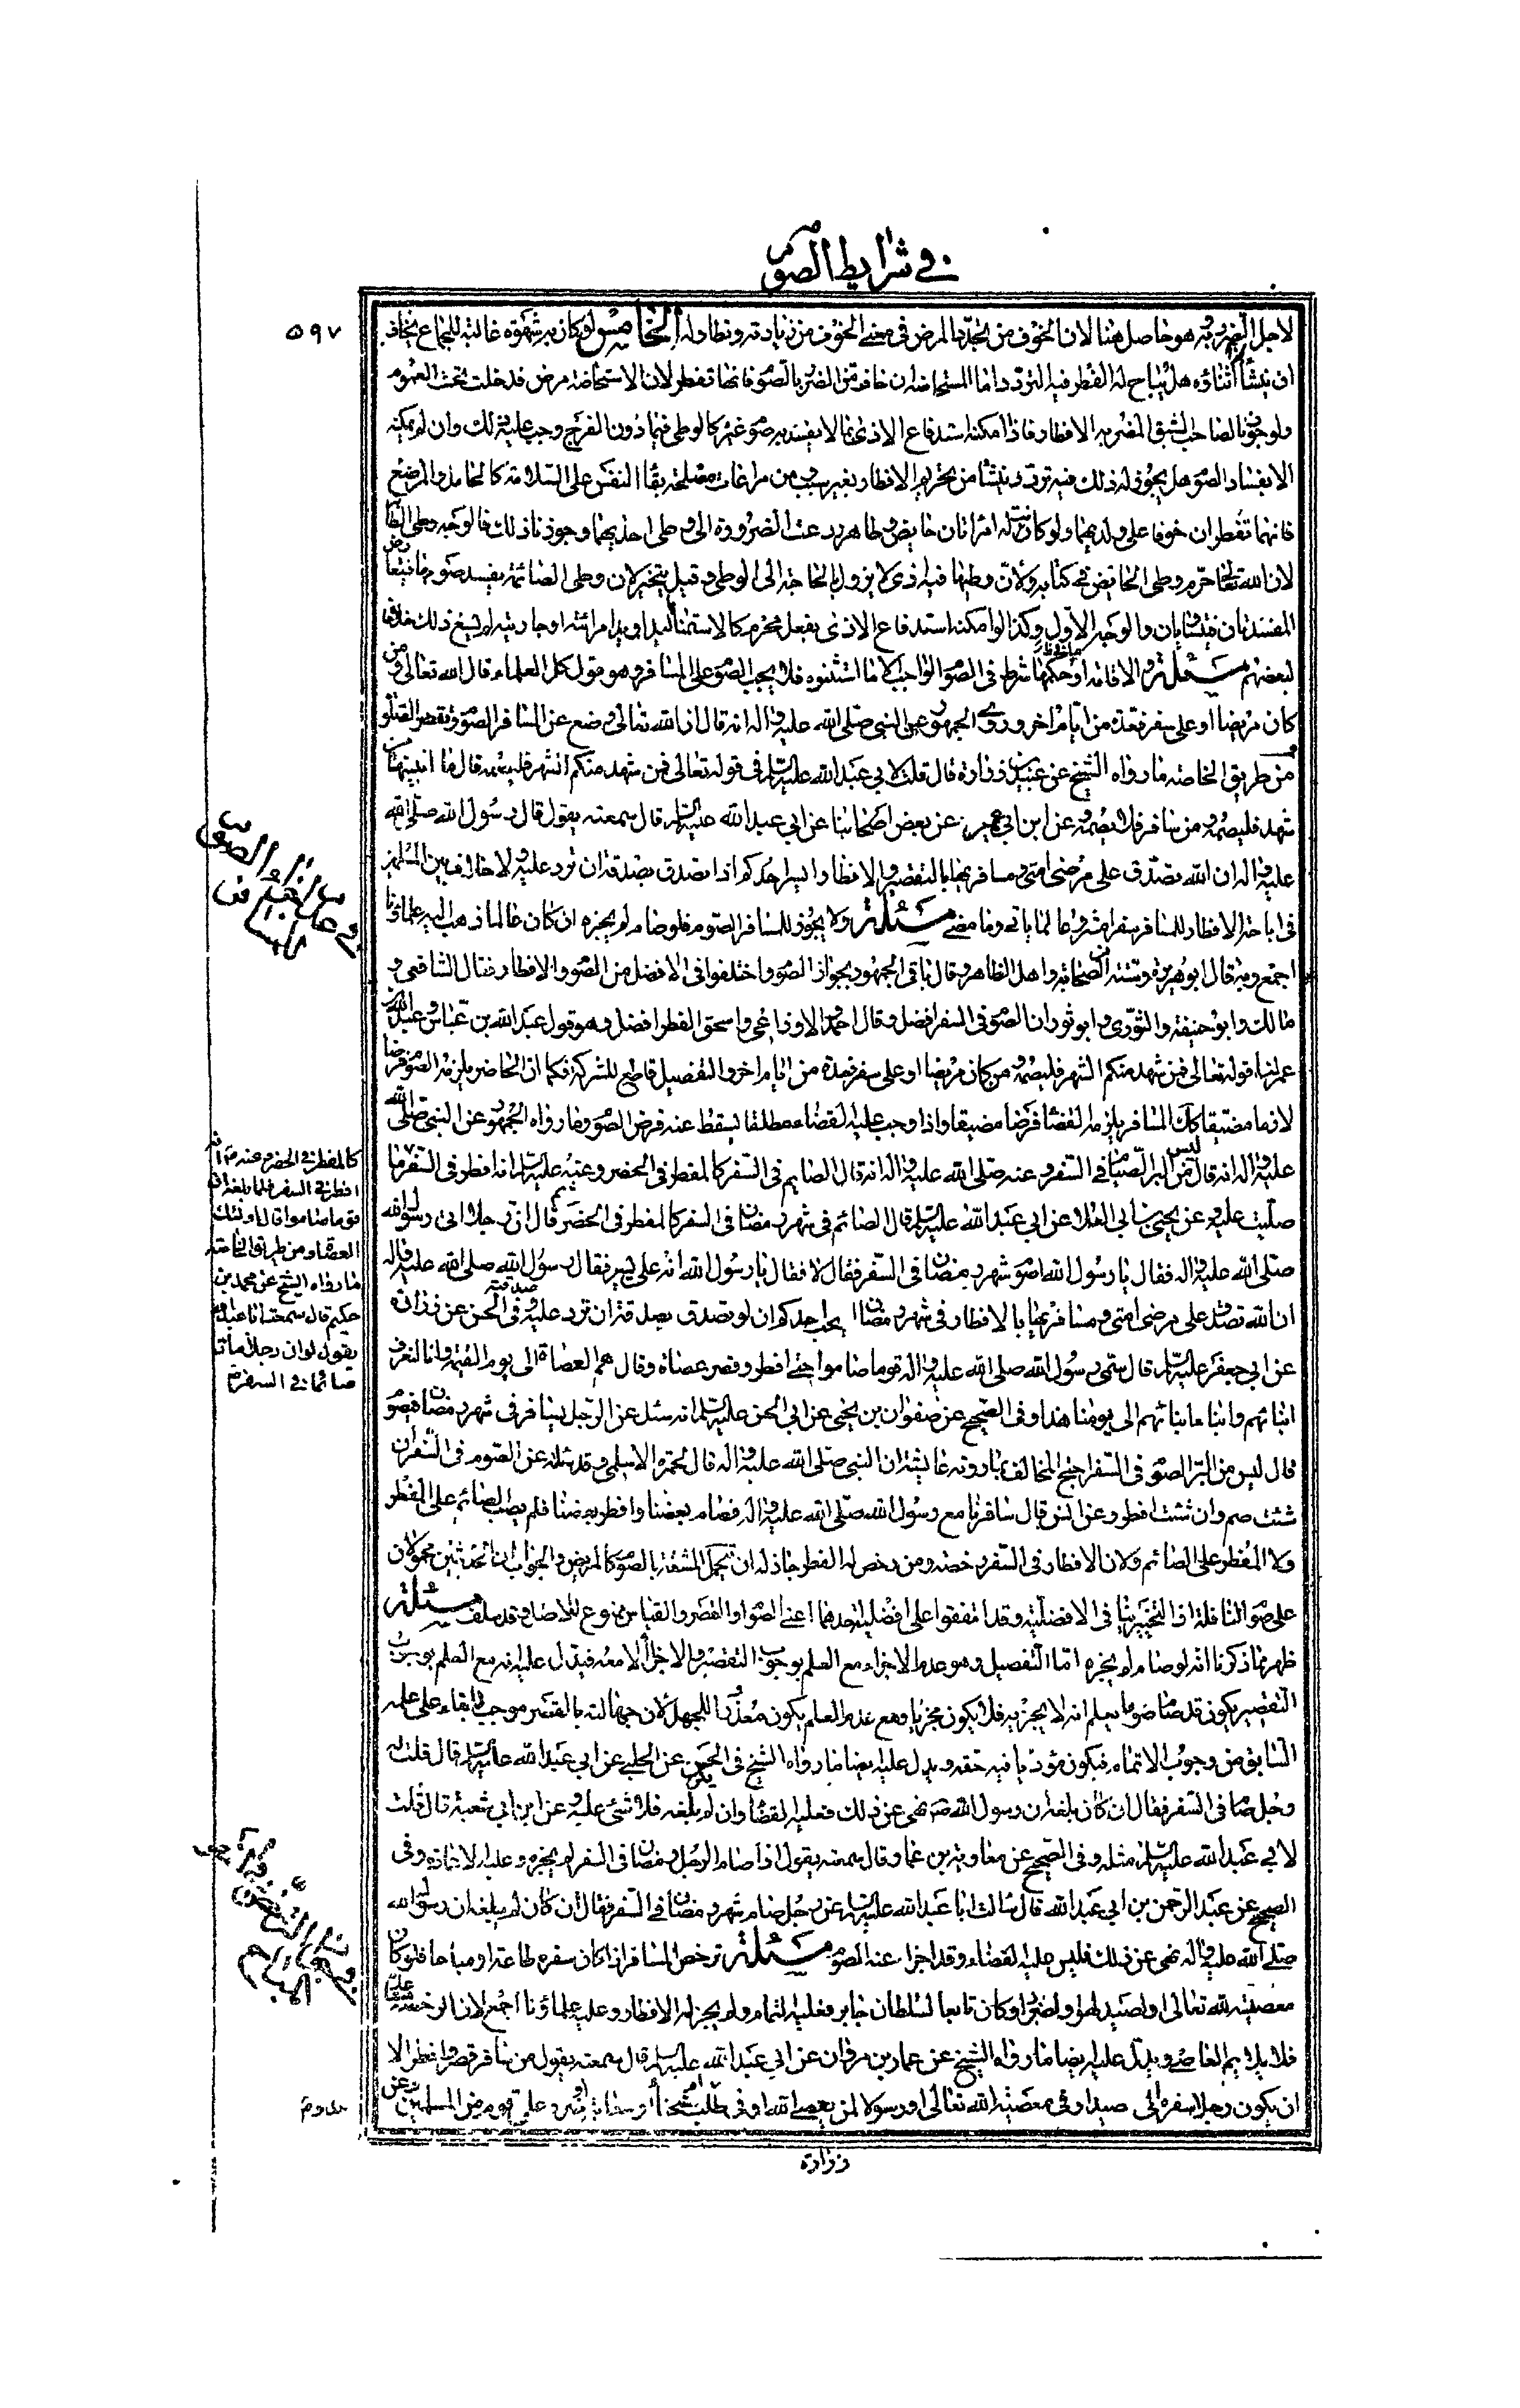 في شرايط الصوم
٥٩٧
لاجل الضرر به هو حاصل هنا لان الخوف من تجدد المرض في معنى الخوف من زيادته وتطاوله الخامس لو كان به شهوة غالبة للجماع يخاف
ان ينشق انثاؤه هل يباح له الفطر فيه التردد اما المستحاضة ان خافت من الضرر بالصوم فانها تفطر لان الاستحاضة مرض فدخلت تحت العموم
ولو جوزنا لصاحب الشبق المضر به الافطار فاذا امكنه استدفاع الاذى بما لا يفسد به صوم غيره كالوطي فيما دون الفرج وجب عليه ذلك وان لم يمكنه
الا بافساد الصوم هل يجوز له ذلك فيه تردد ينشأ من تحريم الافطار بغير سبب ومن مراعات مصلحة بقاء النفس على السلامة كالحامل والمرضع
فانهما تفطران خوفا على ولديهما ولو كانت له امرأتان حايض وطاهر ودعت الضرورة الى وطي احديهما وجوزنا ذلك فالوجه وطي الطاهر
لان الله تعالى حرم وطى الحائض في كتابه ولان وطيها فيه اذى لا يزول بالحاجة الى الوطي وقيل يتخير لان وطى الصائمة يفسد صومها فيتعارض
المفسدتان فيتساويان والوجه الاول وكذا لو امكنه استدفاع الاذى بفعل محرم كالاستمناء بيده او يد امرأته او جاريته لم يسغ ذلك خلافا
لبعضهم مسئلة والاقامة او حكمها شرط في الصوم الواجب الا ما استثنوه فلا يجب الصوم على المسافر وهو قول كل العلماء قال الله تعالى ومن
كان مريضا او على سفر فعدة من ايام اخر وروى الجمهور عن النبي صلى الله عليه واله انه قال ان الله تعالى وضع عن المسافر الصوم وشطر الصلوة
ومن طريق الخاصة ما رواه الشيخ عن عبيد بن زرارة قال قلت لابي عبد الله عليه السلام في قوله تعالى فمن شهد منكم الشهر فليصمه قال ما ابينها من
شهد فليصمه ومن سافر فلا يصمه وعن ابن ابي عمير عن بعض اصحابنا عن ابي عبد الله عليه السلام قال سمعته يقول قال رسول الله صلى الله
عليه واله ان الله تصدق على مرضى امتى ومسافريها بالتقصير والافطار ايسر احدكم اذا تصدق بصدقة ان ترد عليه ولا خلاف بين المسلمين
في اباحة الافطار للمسافر سفرا مشروعا لما ياتي وما مضى مسئلة ولا يجوز للمسافر الصوم فلو صام لم يجزه ان كان عالما ذهب اليه علماؤنا
اجمع وبه قال ابو هريرة وستة من الصحابة واهل الظاهر وقال باقي الجمهور بجواز الصوم واختلفوا في الافضل من الصوم والافطار فقال الشافعي و
مالك وابو حنيفة والثوري وابو ثور ان الصوم في السفر افضل وقال احمد والاوزاعي واسحق الفطر افضل وهو قول عبد الله بن عباس وعبد الله بن
عمر لنا قوله تعالى فمن شهد منكم الشهر فليصمه ومن كان مريضا او على سفر فعدة من ايام اخر والتفصيل قاطع للشركة فكما ان الحاضر يلزمه الصوم فرضا
لازما مضيقا كك المسافر يلزمه القضاء فرضا مضيقا واذا وجب عليه القضاء مطلقا يسقط عنه فرض الصوم وما رواه الجمهور عن النبي صلى الله
عليه واله انه قال ليس من البر الصيام في السفر وعنه صلى الله عليه واله انه قال الصايم في السفر كالمفطر في الحضر وعنه عليه السلام انه افطر في السفر
صلى الله عليه واله فقال يا رسول الله اصوم شهر رمضان في السفر فقال لا فقال يا رسول الله انه على يسير فقال رسول الله صلى الله عليه واله
ان الله تصدق على مرضى امتى ومسافريها بالافطار في شهر رمضان ايحب احدكم ان لو تصدق بصدقة ان ترد عليه صدقته وفي الحسن عن زرارة
عن ابي جعفر عليه السلام قال سمى رسول الله صلى الله عليه واله قوما صاموا حين افطر وقصر عصاة وقال هم العصاة الى يوم القيمة وانا لنعرف
ابنائهم وابناء ابنائهم الى يومنا هذا وفي الصحيح عن صفوان بن يحيى عن ابي الحسن عليه السلام انه سئل عن الرجل يسافر في شهر رمضان فيصوم
قال ليس من البر الصوم في السفر احتج المخالف بما روته عايشة ان النبي صلى الله عليه واله قال لحمزة الاسلمي وقد سئله عن الصوم في السفر ان
شئت صم وان شئت افطر وعن انس قال سافرنا مع رسول الله صلى الله عليه واله فصام بعضنا وافطر بعضنا فلم يعب الصائم على المفطر
ولا المفطر على الصائم ولان الافطار في السفر رخصة ومن رخص له الفطر جاز له ان يتحمل المشقة بالصوم كالمريض والجواب ان الحديثين محمولان
على صوم النافلة اذ التخيير ينافي الافضلية وقد اتفقوا على افضلية احدهما اعنى الصوم او القصر والقياس ممنوع الاصل وقد سلف مسئلة
ظهر مما ذكرنا انه لو صام لم يجزه اما التفصيل وهو عدم الاجزاء مع العلم بوجوب التقصير والاجزاء لا معه فيدل عليه انه مع العلم بوجوب
التقصير يكون قد صام صوما يعلم انه لا يجزيه فلا يكون مجزيا ومع عدم العلم يكون معذورا للجهل لان جهالته بالقصر موجب لبقاء على علمه
السابق من وجوب الاتمام فيكون مؤديا فيه حقه ويدل عليه ايضا ما رواه الشيخ في الحسن عن الحلبي عن ابي عبد الله عليه السلام قال قلت له
رجل صام في السفر فقال ان كان بلغه ان رسول الله ص نهى عن ذلك فعليه القضاء وان لم يكن بلغه فلا شئ عليه وعن ابن ابي شعبة قال قلت
لابي عبد الله عليه السلام مثله وفي الصحيح عن معاوية بن عمار قال سمعته يقول اذا صام الرجل رمضان في السفر لم يجزه وعليه الاعادة وفي
الصحيح عن عبد الرحمن بن ابي عبد الله قال سالت ابا عبد الله عليه السلام عن رجل صام شهر رمضان في السفر فقال ان كان لم يبلغه ان رسول الله
صلى الله عليه واله نهى عن ذلك فليس عليه القضاء وقد اجزاء عنه الصوم مسئلة ترخص المسافر اذا كان سفره طاعة او مباحا فلو كان
معصية لله تعالى او لصيد لهو او لضرر او كان تابعا لسلطان جاير فعليه التمام ولم يجز له الافطار وعليه علماؤنا اجمع لان الرخصة
ويدل عليه ايضا ما رواه الشيخ عن عمار بن مروان عن ابي عبد الله عليه السلام قال سمعته يقول من سافر قصر وافطر الا
ان يكون رجلا سفره الى صيد او في معصية الله تعالى او رسولا لمن يعصى الله او في طلب شحناء او سعاية ضرر على قوم من المسلمين وعن
زرارة
كالمفطر في الحضر وعنه ص انه
افطر في السفر فلما بلغه ان
قوما صاموا قال اولئك
العصاة ومن طريق الخاصة
ما رواه الشيخ عن محمد بن
حكيم قال سمعت ابا عبد الله
يقول لو ان رجلا مات
صائما في السفر